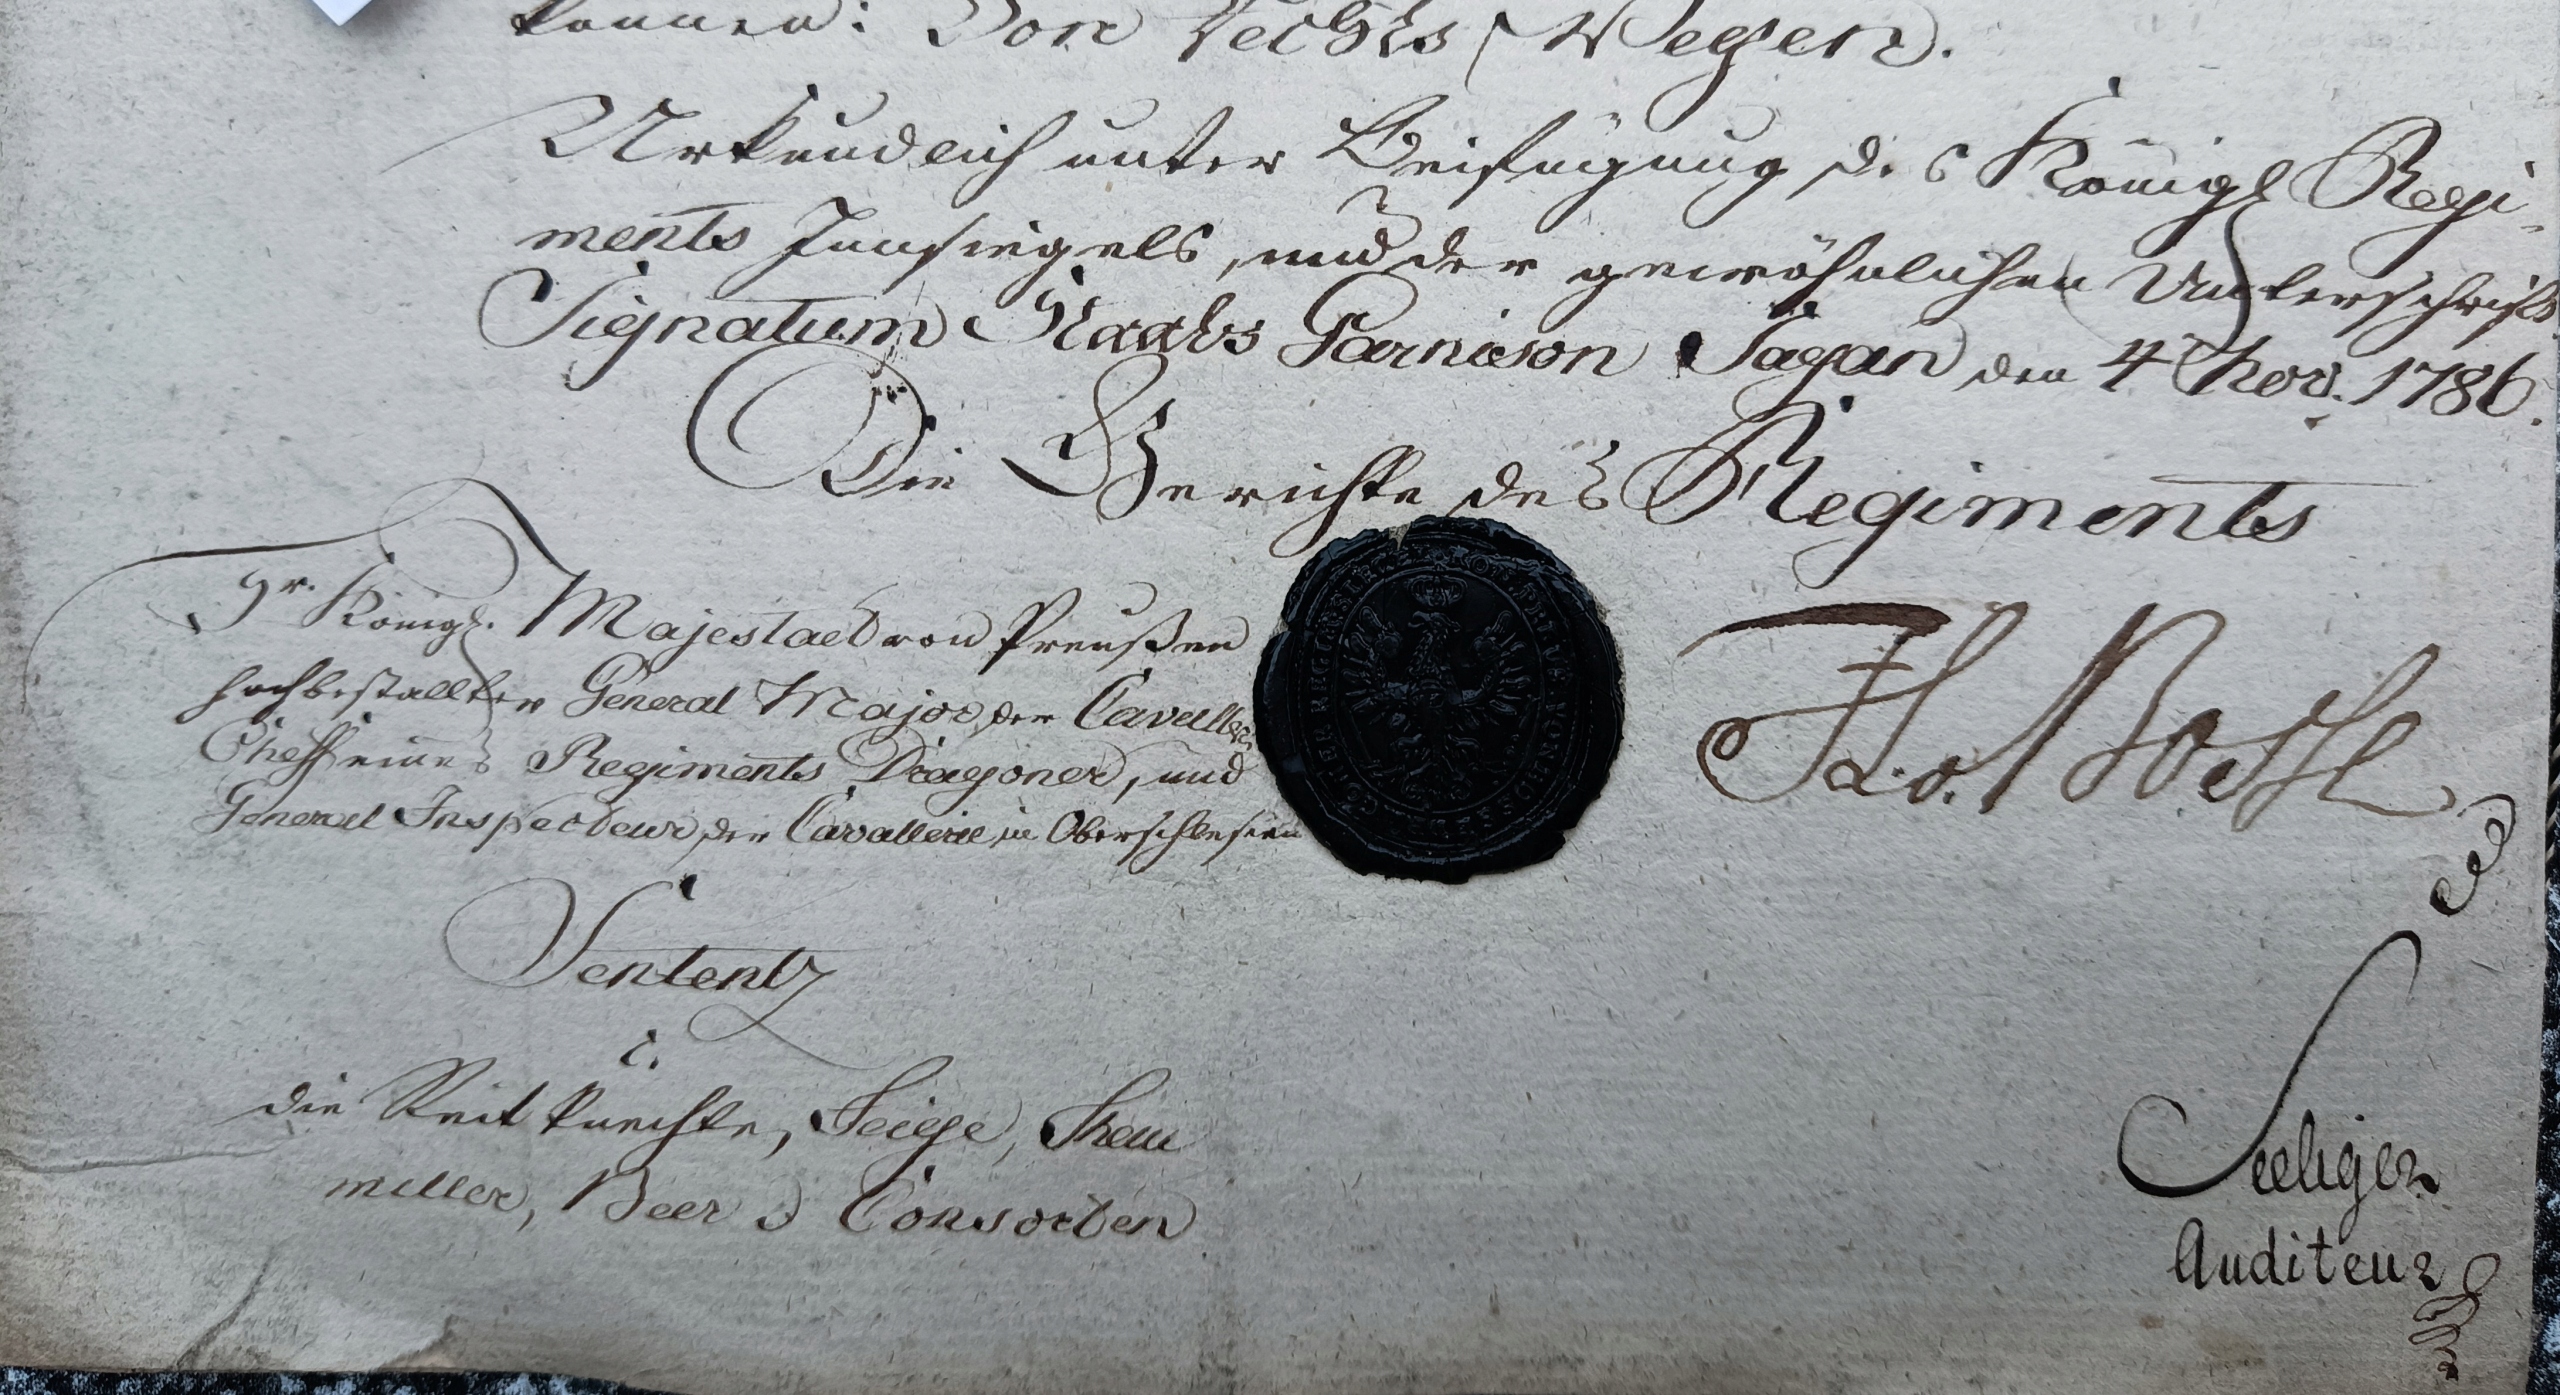 kennen: Von Rechts Wegen.
Urkundlich unter Beifügung des Königl Regi-
ments Innsiegels, und der gewöhnlichen Unterschrift.
Signatum Staabs Garnison Sagan den 4 Nov. 1786.
Die Gerichte des Regiments
Sr. Königl. Majestaet von Preußen
hochbestallter General Major, der Cavallerie
Cheff eines Regiments Dragoner, und
General Inspecteur, der Cavallerie in Oberschlesien
Sententz
c.
die Reitknechte, Feige, Them
miller, Beer & Consorten
Seeliger
Auditeur